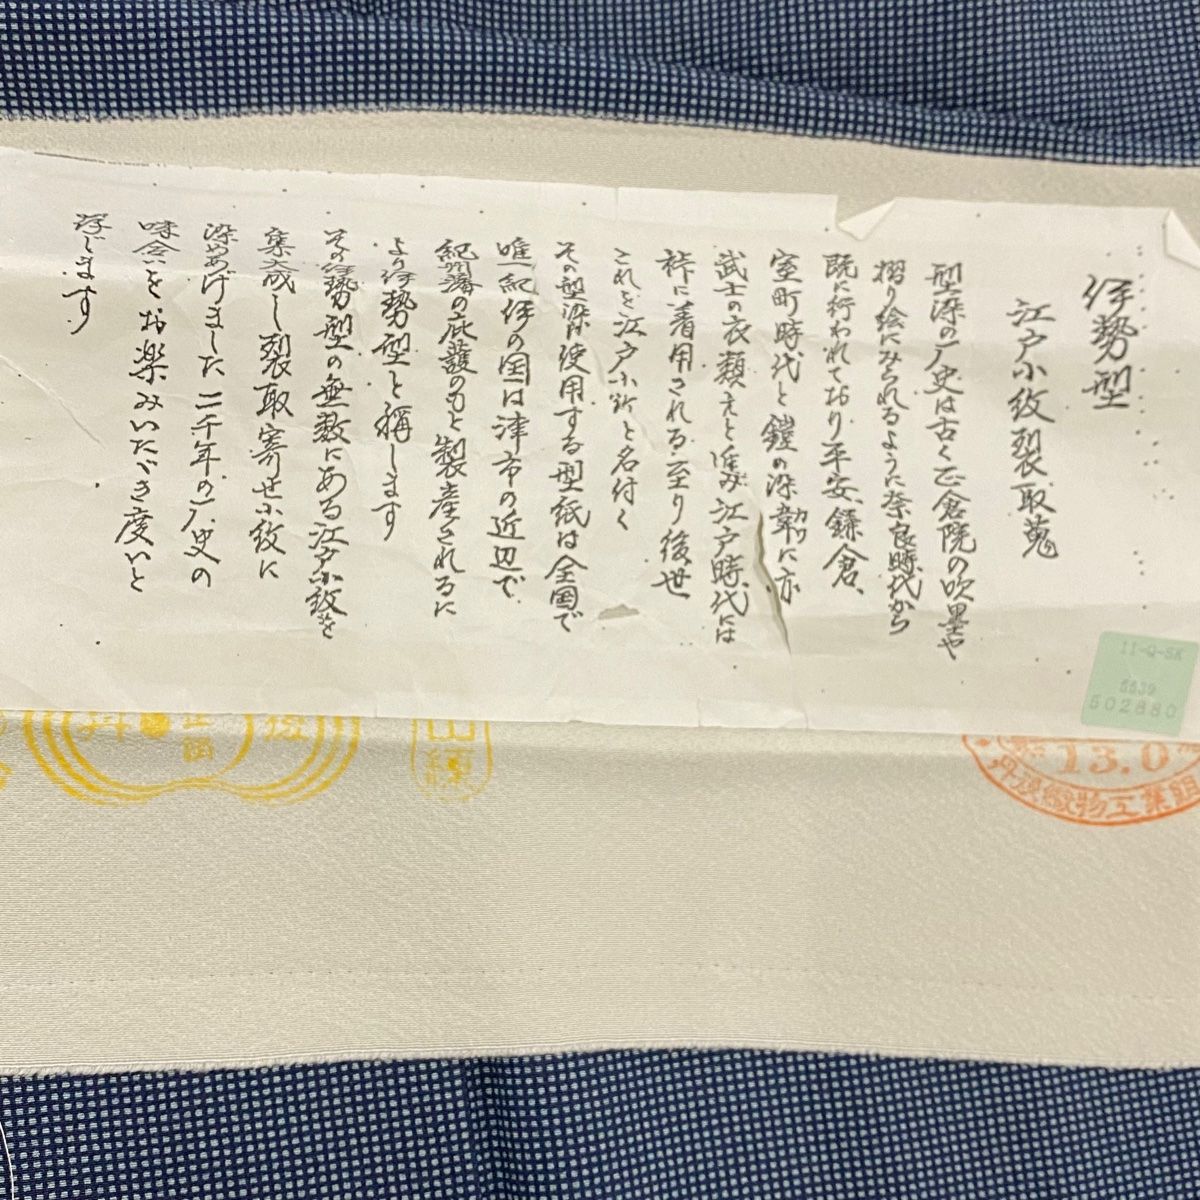 伊勢型
江戸小紋裂取蒐
型染の歴史は古く正倉院の吹墨や
摺り絵にみられるように奈良時代から
既に行われており平安、鎌倉、
室町時代と鎧の染韋に亦
カワ
武士の衣類えと進み江戸時代には
裃に着用される至り後世
これを江戸小紋と名付く
その型染に使用する型紙は全国で
唯一紀伊の国は津市の近辺で
紀州藩の庇護のもと製産されるに
より伊勢型と稱します
その伊勢型の無数にある江戸小紋を
集大成し裂取寄せ小紋に
染めあげました 二千年の歴史の
味合いをお楽みいたゞき度いと
存じます
II-Q-SK
5539
502880
13.0
丹後織物工業組
山練
丹 後